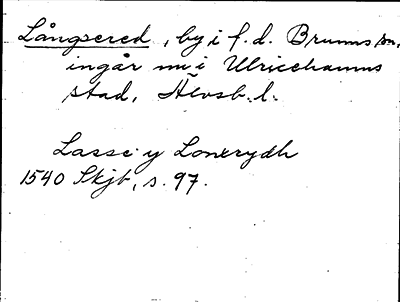 Långsered, by i f. d. Brunns sn,
ingår nu i Ulricehamns
stad, Älvsb. l.
Lasse y Lonxrydh
1540 Skjb, s. 97.